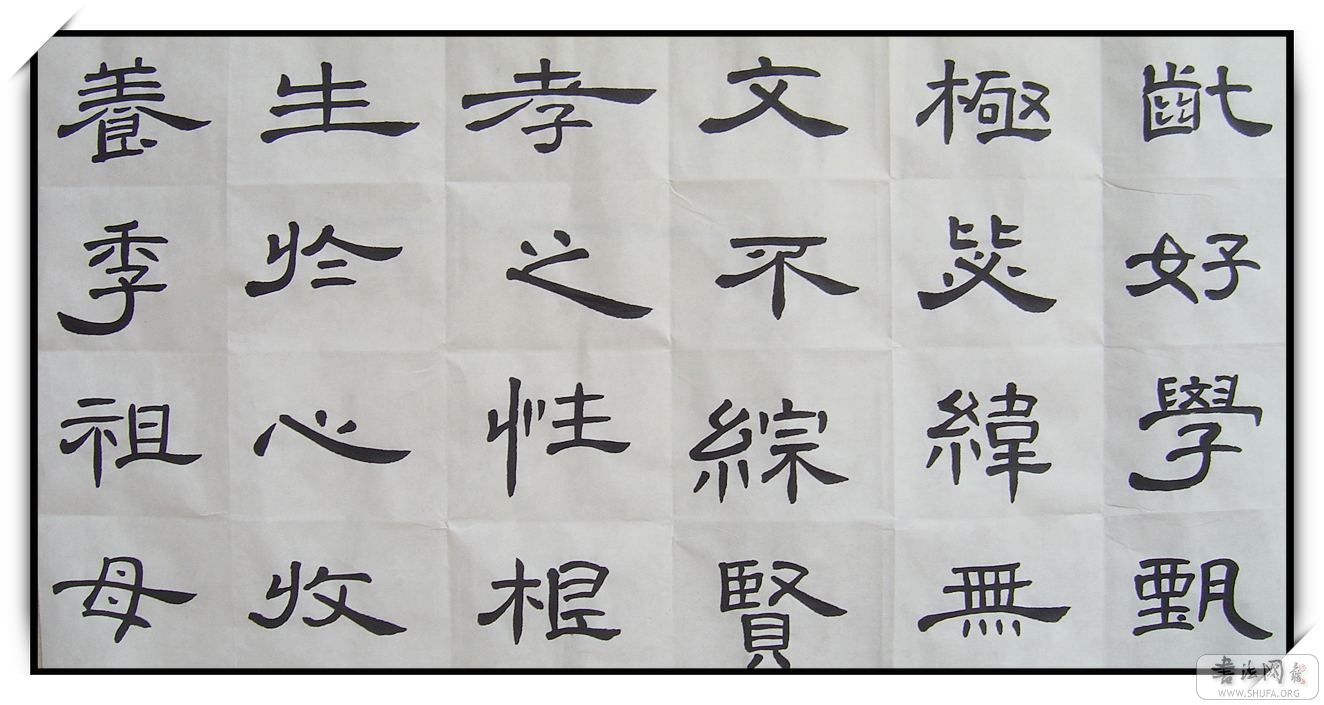 齔好學甄
極毖緯無
文不綜賢
孝之性根
生於心收
養季祖母
書法网
WWW.SHUFA.ORG